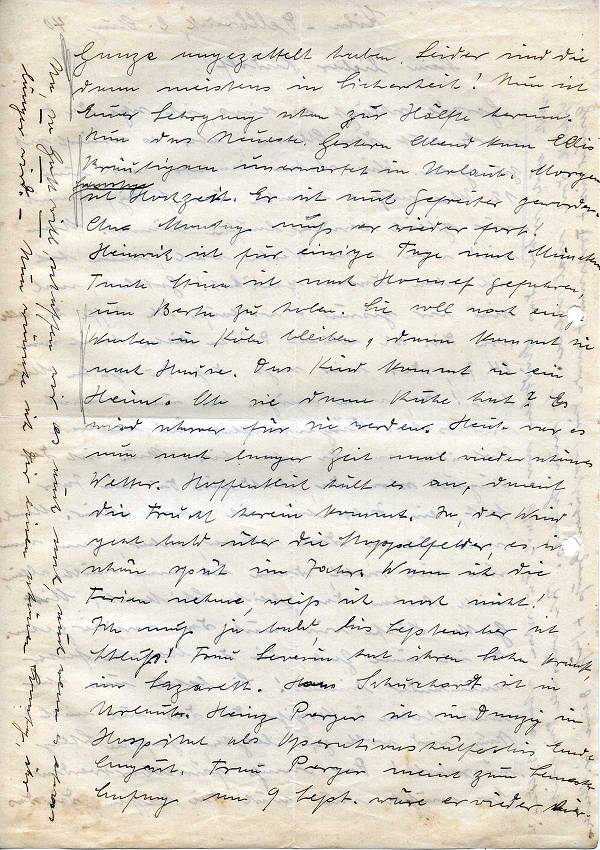 Ganze angezettelt haben. Leider sind die
dann meistens in Sicherheit! Nun ist
Euer Lehrgang schon zur Hälfte herum.
Nun das Neueste. Gestern Abend kam Ellis
Bräutigam unerwartet in Urlaub. Morgen
ist Hochzeit. Er ist nun Gefreiter geworden.
Montag muß er wieder fort!
Heinrich ist für einige Tage nach München
Tante ist nach gefahren,
um Berta zu holen. Sie soll noch einige
Wochen in Köln bleiben, dann kommt sie
nach Hause. Das Kind kommt in ein
Heim. Ob sie dann Ruhe hat? Es
wird schwer für sie werden. Heute war es
nun nach langer Zeit mal wieder schönes
Wetter. Hoffentlich hält es an, damit
die Frucht herein kommt. Ja, der Wind
geht bald über die Stoppelfelder, es ist
schon spät im Jahr. Wann ich die
Ferien nehme, weiß ich noch nicht!
Ich muß ja bald, bis September ist
Schluß! Frau Severin hat ihren Sohn krank
im Lazarett. Hans Schuchardt ist in
Urlaub. Heinz Perger ist in Danzig im
Hospital als Operationshülfe bis Ende
August. Frau Perger meint zum Semester
Anfang am 9 Sept. wäre er wieder hier.
Na so Gott will schaffen wir es auch noch, auch wenn es etwas
länger wird. – Nun wünsche ich Dir einen schönen Sonntag,